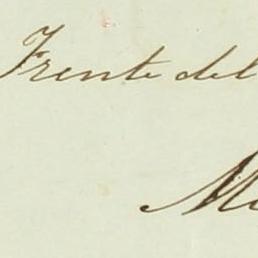 Frente del